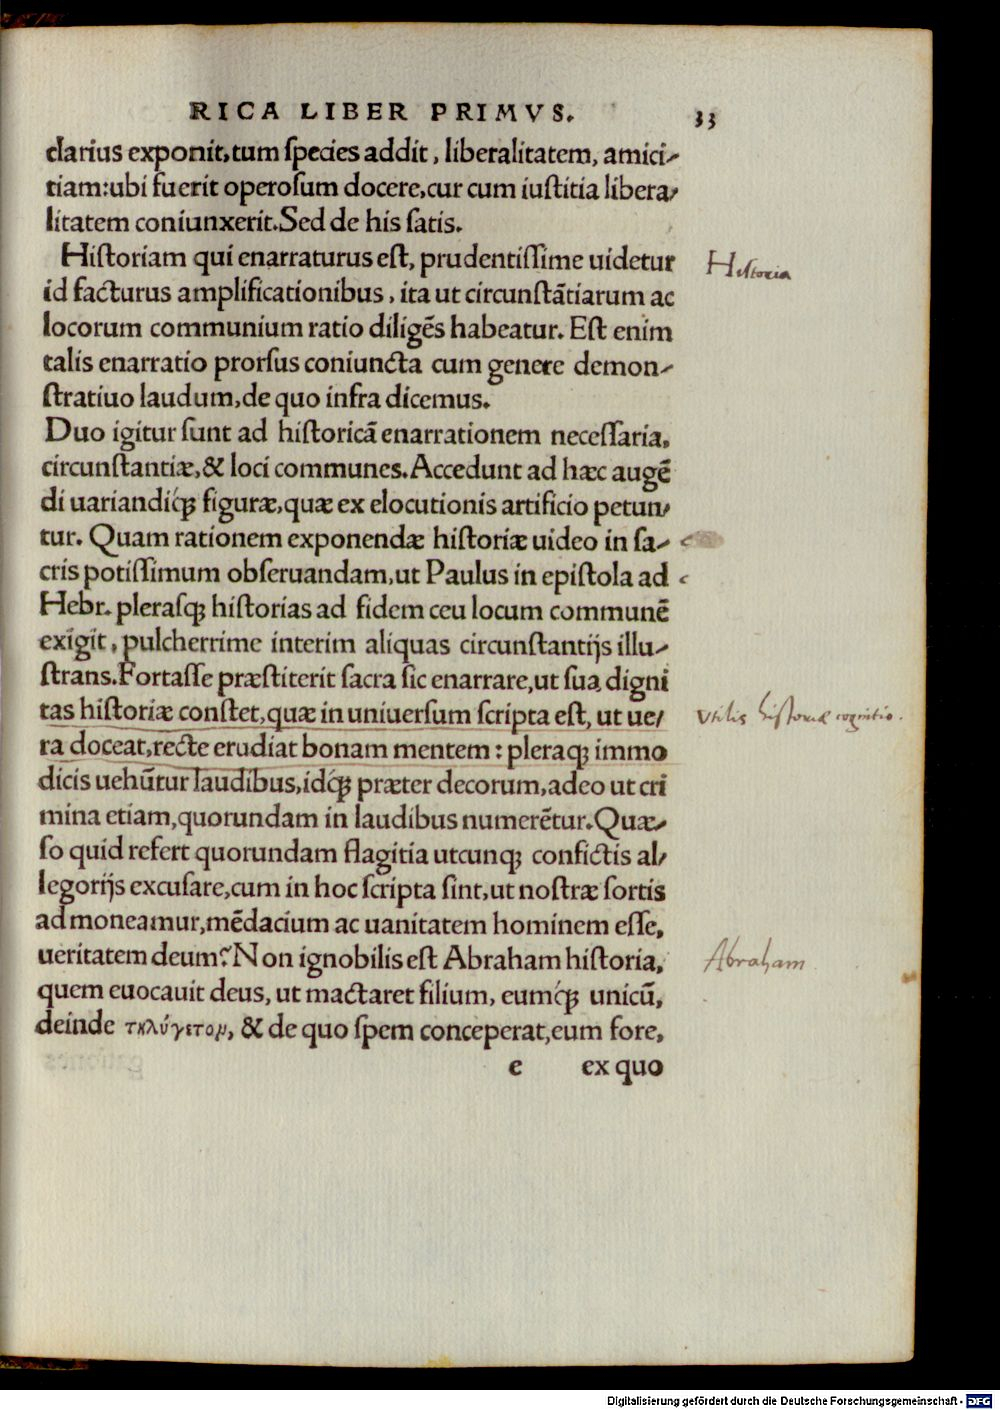 RICA LIBER PRIMVS. 33
clarius exponit, tum ſpecies addit, liberalitatem, amici-
tiam: ubi fuerit operoſum docere, cur cum iuſtitia libera/
litatem coniunxerit. Sed de his ſatis.
Hiſtoriam qui enarraturus eſt, prudentiſſime uidetur
Historia
id facturus amplificationibus, ita ut circunſtātiarum ac
locorum communium ratio diligēs habeatur. Eſt enim
talis enarratio prorſus coniuncta cum genere demon-
ſtratiuo laudum, de quo infra dicemus.
Duo igitur ſunt ad hiſtoricā enarrationem neceſſaria,
circunſtantiæ, & loci communes. Accedunt ad hæc augē
di uariandiq́ꝫ figuræ, quæ ex elocutionis artificio petun/
tur. Quam rationem exponendæ hiſtoriæ uideo in ſa-
cris potiſſimum obſeruandam, ut Paulus in epiſtola ad
Hebr. pleraſqꝫ hiſtorias ad fidem ceu locum communē
exigit, pulcherrime interim aliquas circunſtantijs illu-
ſtrans. Fortaſſe præſtiterit ſacra ſic enarrare, ut ſua digni
tas hiſtoriæ conſtet, quæ in uniuerſum ſcripta eſt, ut ue/
Vtilis historiæ cognitio.
ra doceat, recte erudiat bonam mentem: pleraqꝫ immo
dicis uehūtur laudibus, idq́ꝫ præter decorum, adeo ut cri
mina etiam, quorundam in laudibus numerētur. Quæ-
ſo quid refert quorundam flagitia utcunqꝫ confictis al/
legorijs excuſare, cum in hoc ſcripta ſint, ut noſtræ ſortis
admoneamur, mēdacium ac uanitatem hominem eſſe,
ueritatem deum? Non ignobilis eſt Abraham hiſtoria,
Abraham
quem euocauit deus, ut mactaret filium, eumq́ꝫ unicū,
deinde τηλύγετον, & de quo ſpem conceperat, eum fore,
e ex quo
Digitalisierung gefördert durch die Deutsche Forschungsgemeinschaft - DFG